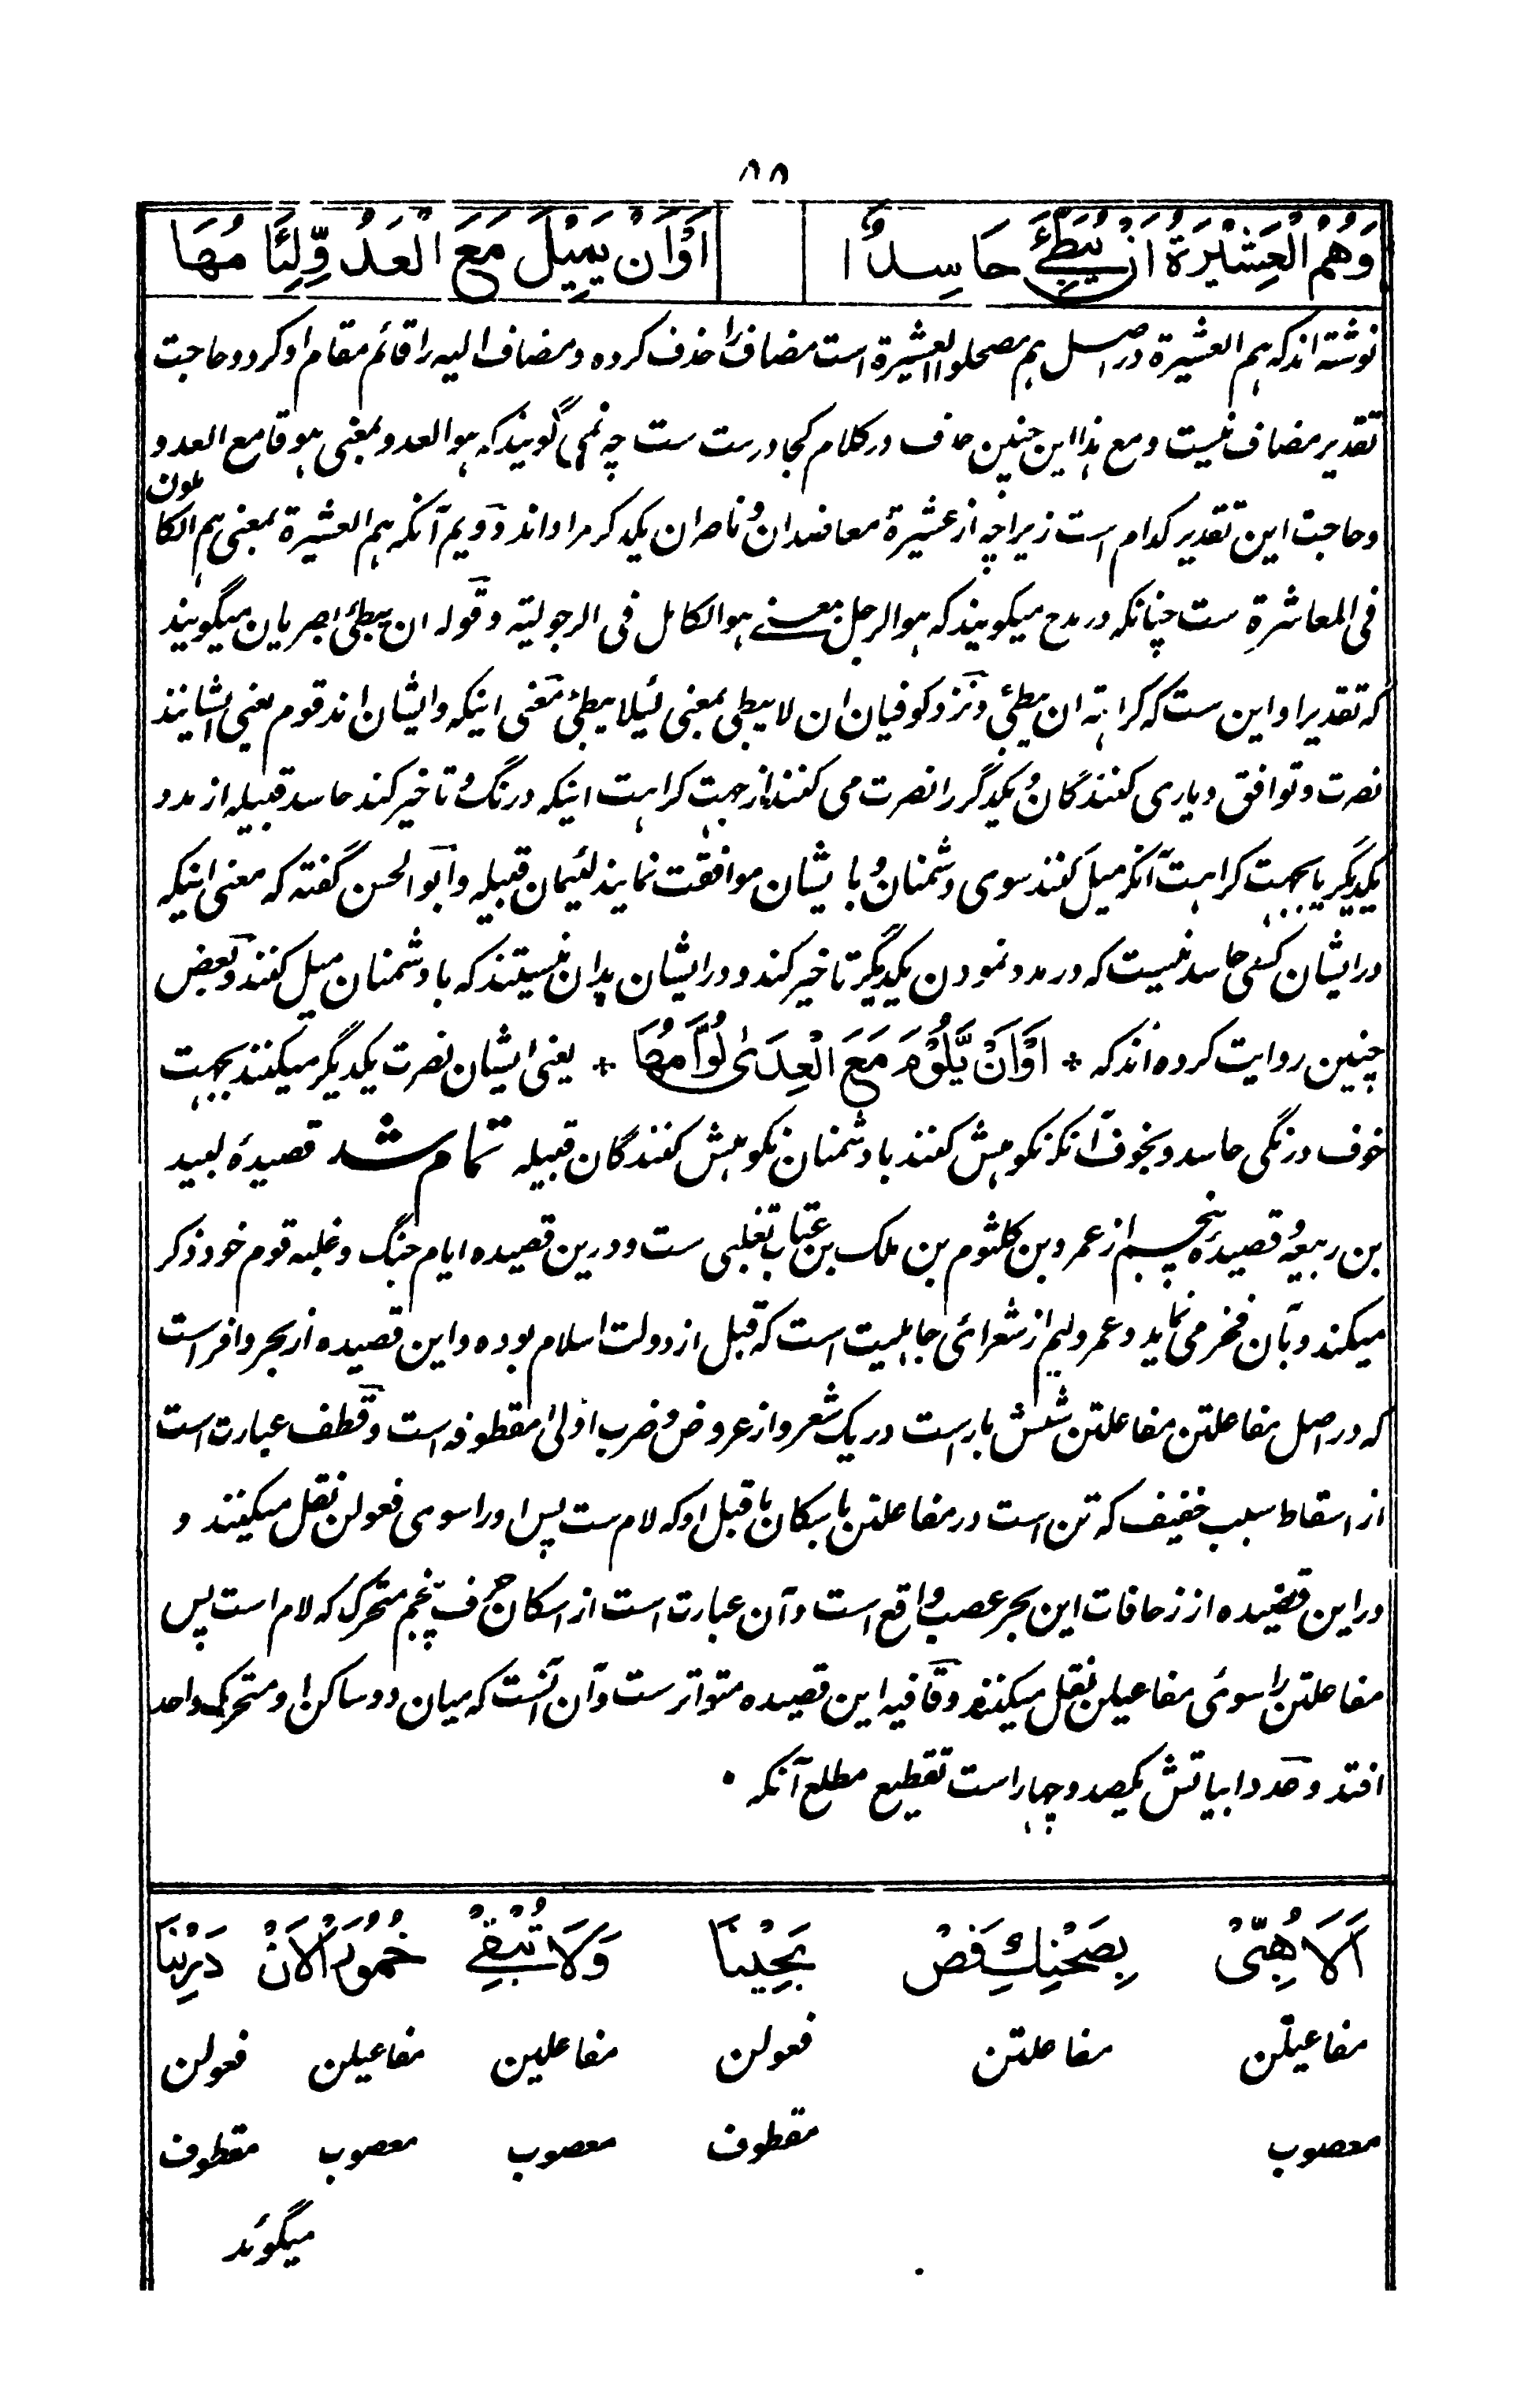 ۸۸
وَهُمُ الْعَشِيْرَةُ اَنْ يُبَطِّئَ حَاسِدٌ اَوْ اَنْ يَمِيْلَ مَعَ الْعَدُوِّ لِئَامُهَا
نوشته اند که هم العشیرة در اصل هم مصحلوا العشیرة است مضاف را حذف کرده و مضاف الیه را قائم مقام او کرد و حاجت
تقدیر مضاف نیست و مع هذا این چنین حذف در کلام کجا درست ست چه نمی گویند که هو العدو بمعنی هو قامع العدو
و حاجت این تقدیر کدام است زیراچه از عشیرة معاضدان و ناصران یکدگر مراد اند دویم آنکه هم العشیرة بمعنی هم الکاملون
فی المعاشرة ست چنانکه در مدح میگویند که هو الرجل بمعنے هو الکامل فی الرجولیة و قوله ان یبطئ بصریان میگویند
که تقدیر او این ست که کراهة ان یبطئ و نزد کوفیان ان لا یبطئ بمعنی لئیلا یبطئ معنی اینکه و ایشان اند قوم یعنی ایشانند
نصرت و توافق و یاری کنندگان و یکدیگر را نصرت می کنند از جهت کراهت اینکه درنگ و تاخیر کند حاسد قبیله از مدد
یکدیگر یا بجهت کراهت آنکه میل کنند سوی دشمنان و با یشان موافقت نمایند لئیمان قبیله و ابو الحسن گفته که معنی اینکه
در ایشان کسی حاسد نیست که در مدد نمودن یکدیگر تاخیر کند و در ایشان بدان نیستند که با دشمنان میل کنند و بعض
چنین روایت کرده اند که * اَوْ اَنْ يَّلُوْمَ مَعَ الْعِدَىٰ لُوَّامُهَا * یعنی ایشان نصرت یکدیگر میکنند بجهت
خوف درنگی حاسد و بخوف آنکه نکوهش کنند با دشمنان نکوهش کنندگان قبیله تمام شد قصیدۀ لبید
بن ربیعه و قصیدۀ پنجم از عمرو بن کلثوم بن ملک بن عتاب تغلبی ست و درین قصیده ایام جنگ و غلبه قوم خود ذکر
میکند و بآن فخر می نماید و عمرو لیم از شعرائ جاهلیت است که قبل از دولت اسلام بوده و این قصیده از بحر وافر است
که در اصل مفاعلتن مفاعلتن شش بار است در یک شعر و از عروض و ضرب اولیٰ مقطوفه است و قطف عبارت است
از اسقاط سبب خفیف که تن است در مفاعلتن با سکان ما قبل او که لام ست پس او را سوی فعولن نقل میکنند و
در این قصیده از زحافات این بحر عصب واقع است و آن عبارت است از اسکان حرف پنجم متحرک که لام است پس
مفاعلتن را سوئ مفاعیلن نقل میکنند و قافیه این قصیده متواتر ست و آن آنست که میان دو ساکن او متحرک واحد
افتد و عدد ابیاتش یکصد و چهار است تقطیع مطلع آنکه
اَلَا هُبِّیْ بِصَحْنِكِ فَصْ بَحِيْنَا وَلَا تُبْقِيْ خُمُوْرَ الْاَنْ دَرِيْنَا
مفاعیلن مفاعلتن فعولن مفاعلین مفاعیلن فعولن
معصوب مقطوف معصوب معصوب مقطوف
میگوئد